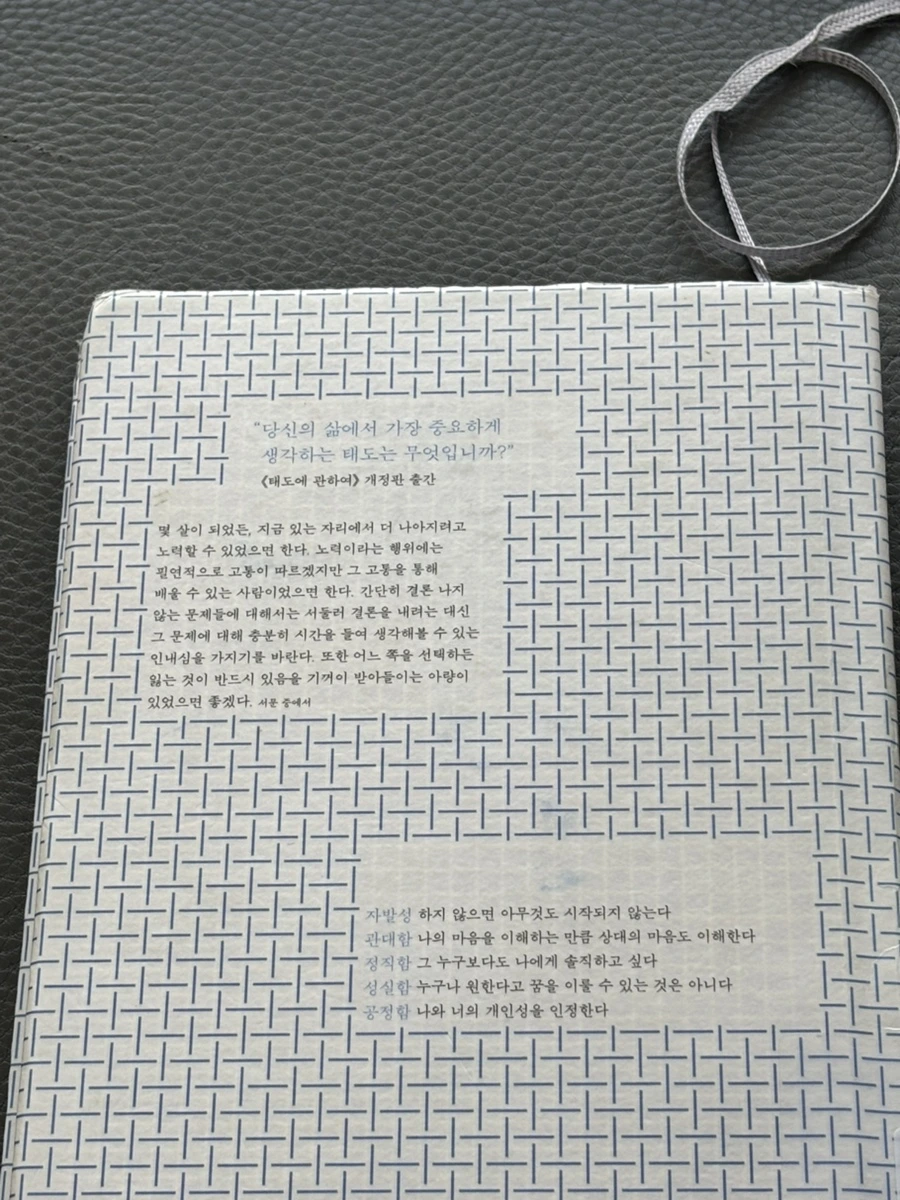 “당신의 삶에서 가장 중요하게
생각하는 태도는 무엇입니까?”
《태도에 관하여》 개정판 출간
몇 살이 되었든, 지금 있는 자리에서 더 나아지려고
노력할 수 있었으면 한다. 노력이라는 행위에는
필연적으로 고통이 따르겠지만 그 고통을 통해
배울 수 있는 사람이었으면 한다. 간단히 결론 나지
않는 문제들에 대해서는 서둘러 결론을 내려는 대신
그 문제에 대해 충분히 시간을 들여 생각해볼 수 있는
인내심을 가지기를 바란다. 또한 어느 쪽을 선택하든
잃는 것이 반드시 있음을 기꺼이 받아들이는 아량이
있었으면 좋겠다. 서문 중에서
자발성 하지 않으면 아무것도 시작되지 않는다
관대함 나의 마음을 이해하는 만큼 상대의 마음도 이해한다
정직함 그 누구보다도 나에게 솔직하고 싶다
성실함 누구나 원한다고 꿈을 이룰 수 있는 것은 아니다
공정함 나와 너의 개인성을 인정한다